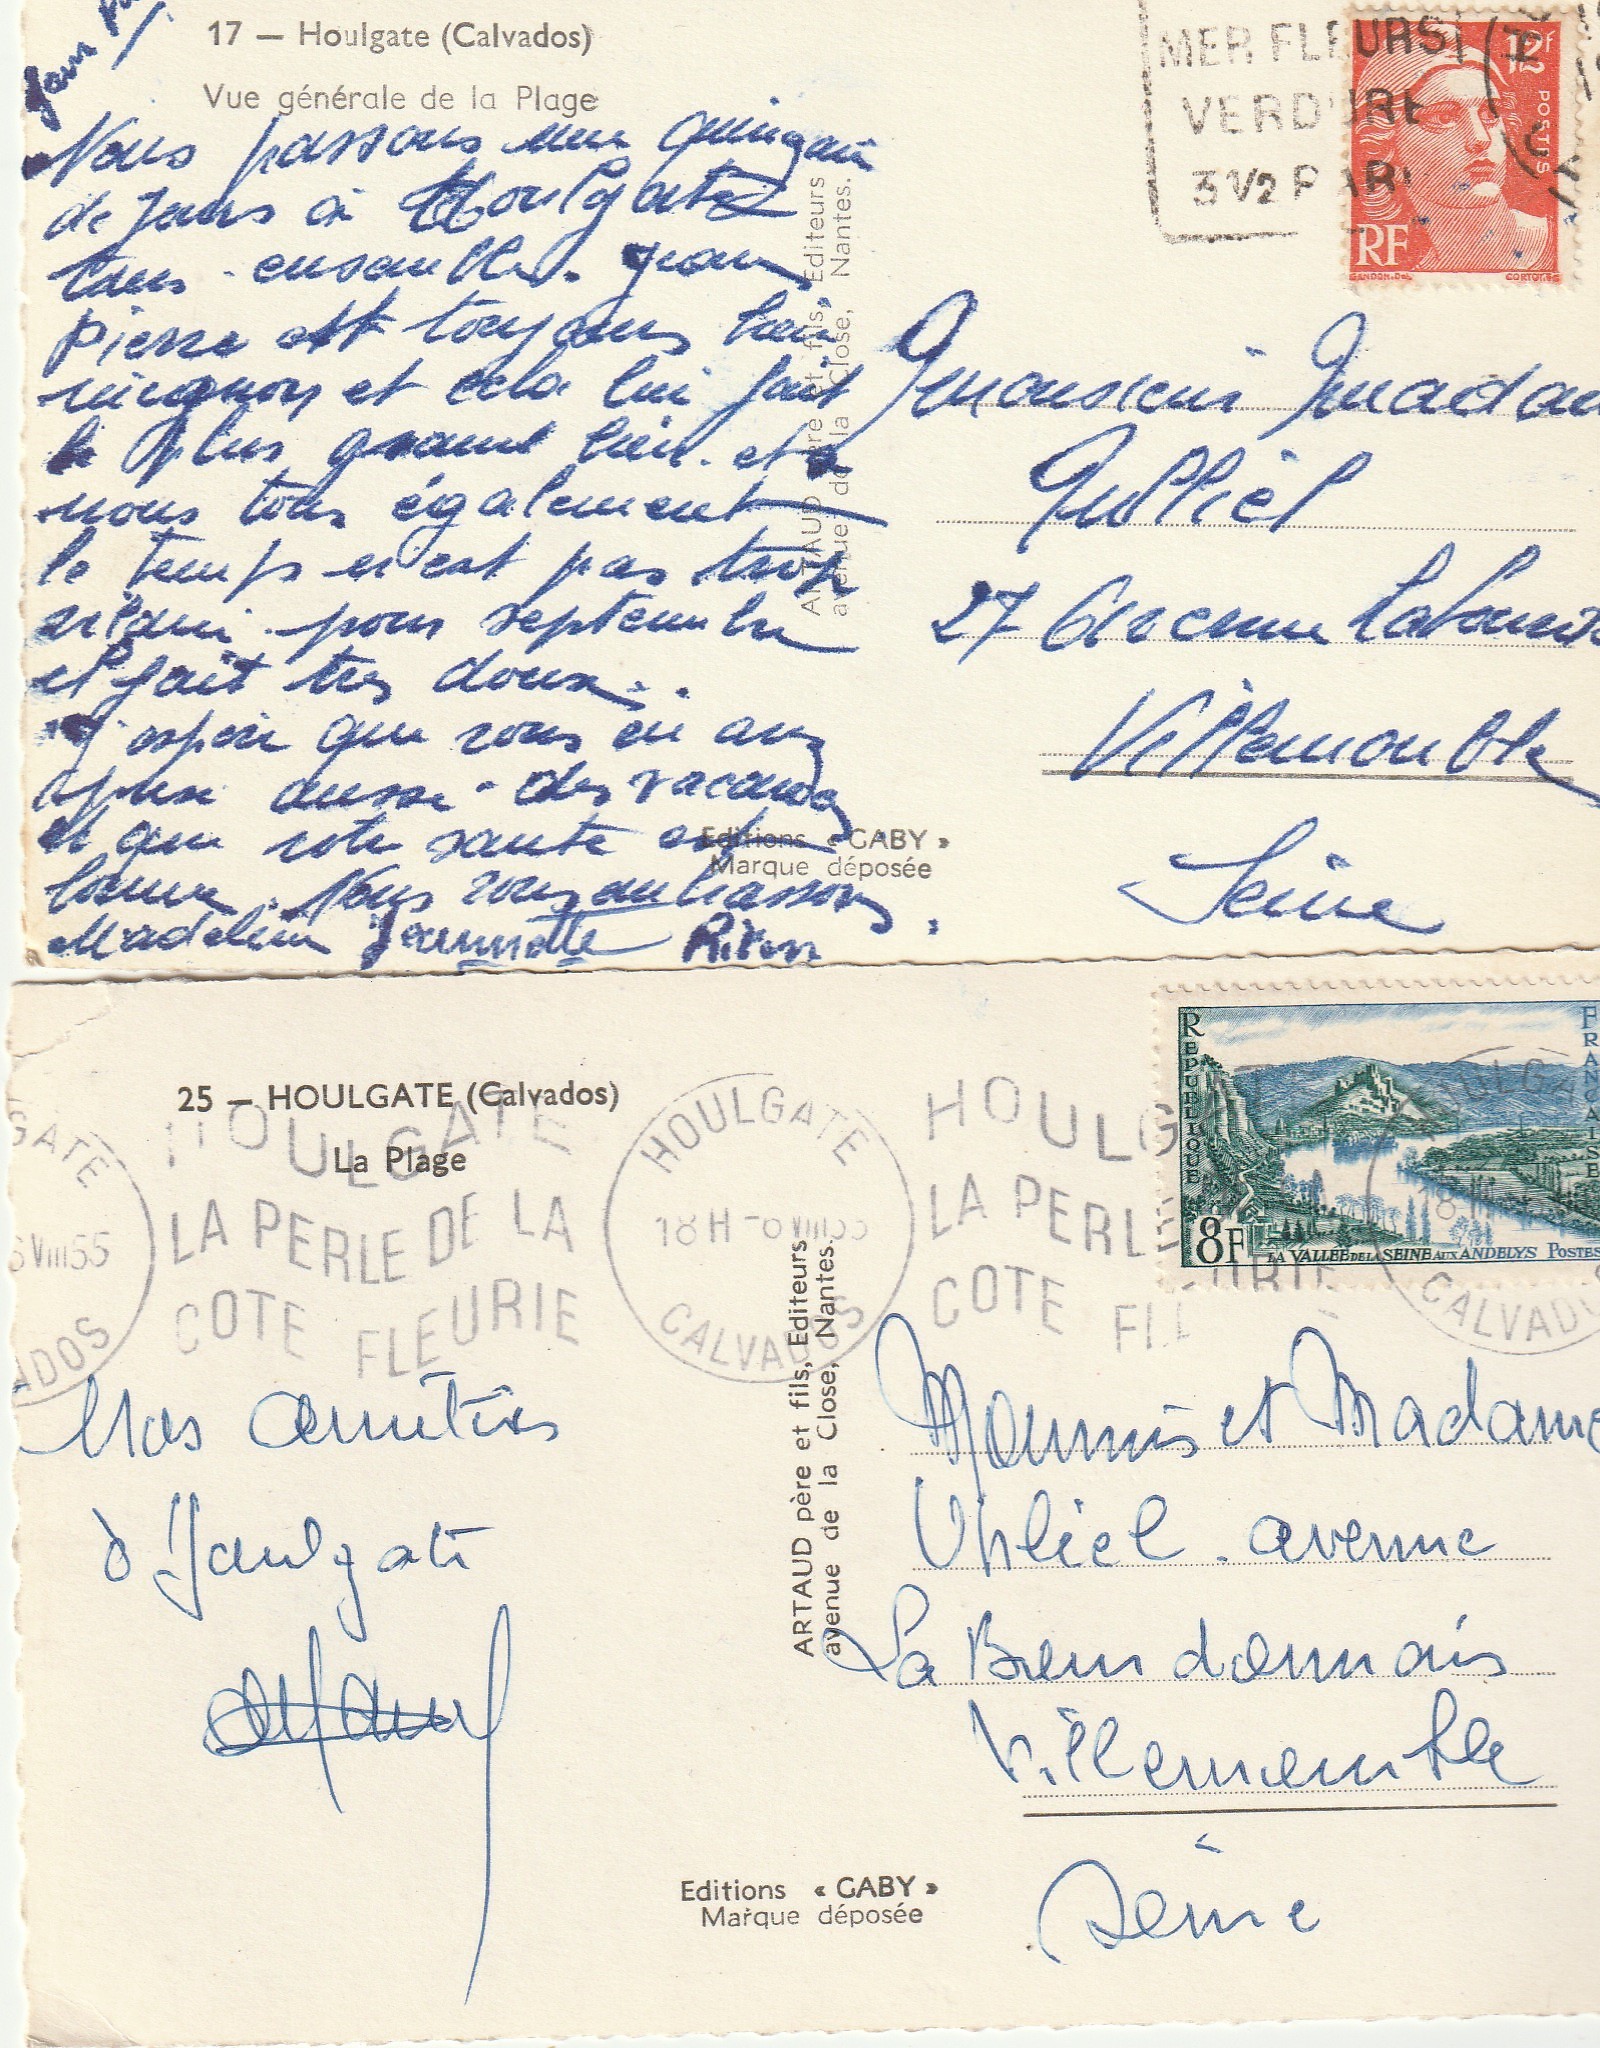 17 — Houlgate (Calvados)
Vue générale de la Plage
MER FLEURS
VERDURE
3 1/2 PARI
12f
POSTES
RF
GANDON.DEL
CORTOT.SC
Nous passons une quinzain
de jours à Houlgate
tous ensemble. Jean
Pierre est toujours bien
mignon et cela lui fait
le plus grand bien. et à
nous tous également
le temps n'est pas trop
vilain. pour septembre
il fait tres doux..
J'espère que vous en avez
aussi des vacances
et que votre santé est
bonne. Nous vous embrassons.
Madeleine Jeannette
Monsieur Madam
27 Avenue
Villemomble
Seine
ARTAUD père et fils, Editeurs
avenue de la Close, Nantes.
Editions « GABY »
Marque déposée
25 — HOULGATE (Calvados)
La Plage
GATE
6 VIII 55
ADOS
HOULGATE
LA PERLE DE LA
COTE FLEURIE
HOULGATE
18H -6 VIII 55
CALVADOS
HOULG
LA PERLE
COTE FLEURIE
OULGA
18
CALVADO
REPUBLIQUE
FRANCAISE
8F
LA VALLEE DE LA SEINE AUX ANDELYS POSTES
Nos amitiés
à Houlgate
Monsieur et Madame
avenue
Villemomble
Seine
ARTAUD père et fils, Editeurs
avenue de la Close, Nantes.
Editions « GABY »
Marque déposée